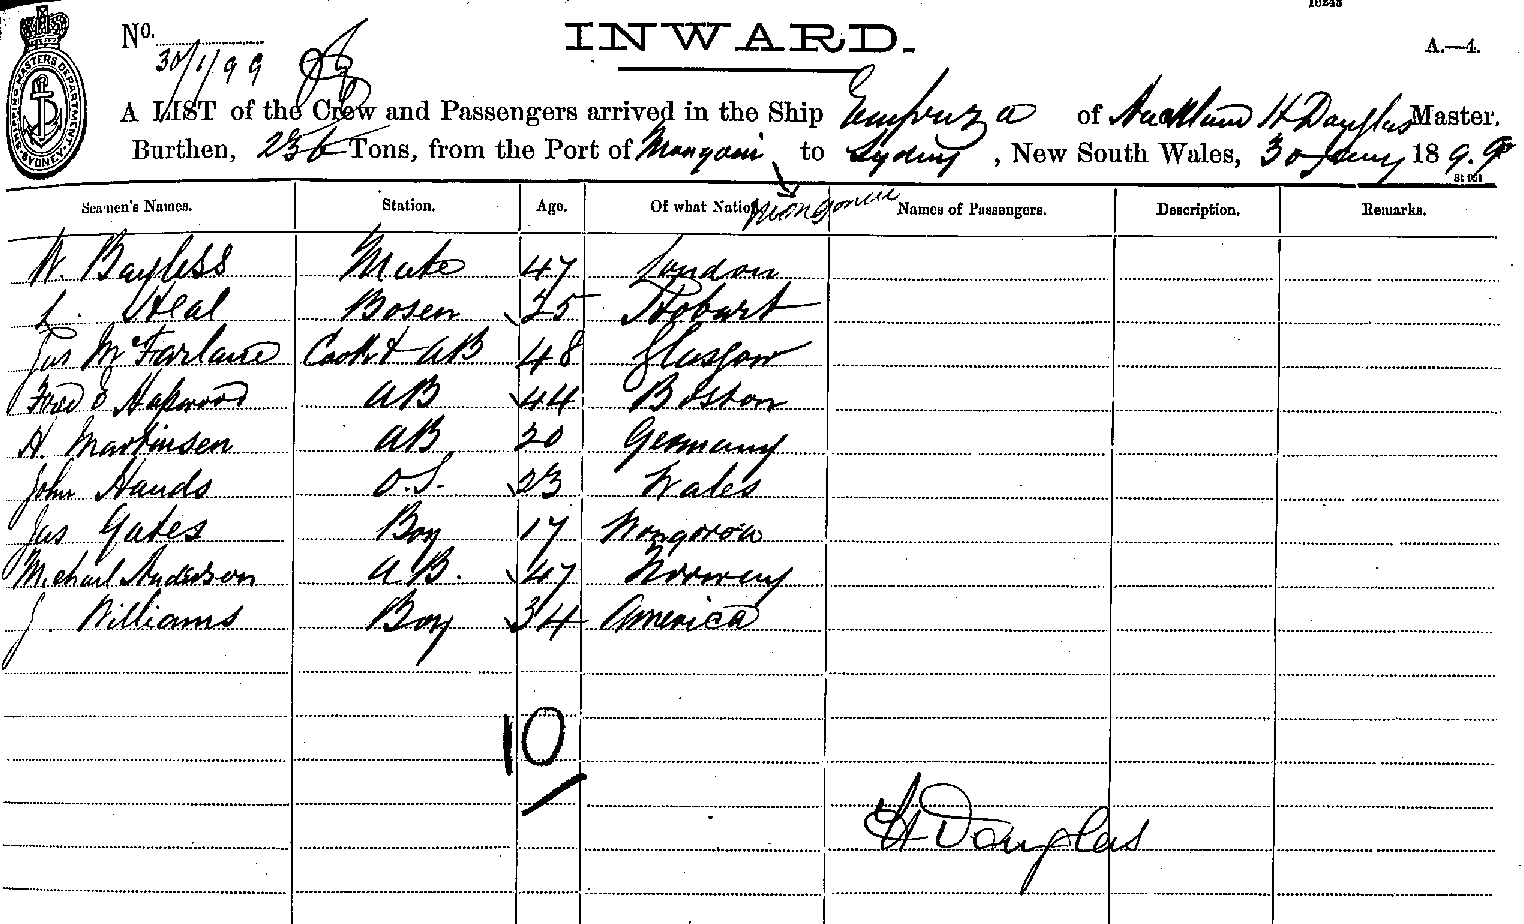 No.
30/1/99
INWARD.
A.—4.
A LIST of the Crew and Passengers arrived in the Ship of Auckland H Douglas Master.
Burthen, 236 Tons, from the Port of Mongoni to Sydney, New South Wales, 30 Jany 1899
Mongonui
Seamen's Names. Station. Age. Of what Nation Names of Passengers. Description. Remarks.
W. Bayliss Mate 47 London
L. Heal Bosen 25 Hobart
Jas McFarlane Cook & AB 48 Glasgow
Fred E Hapwood AB 44 Boston
H. Martinsen AB 20 Germany
John Hands O.S. 23 Wales
Jas Gates Boy 17
Michael Anderson AB. 47 Norway
J. Williams Boy 34 America
10
H Douglas
SHIPPING MASTERS DEPARTMENT SYDNEY